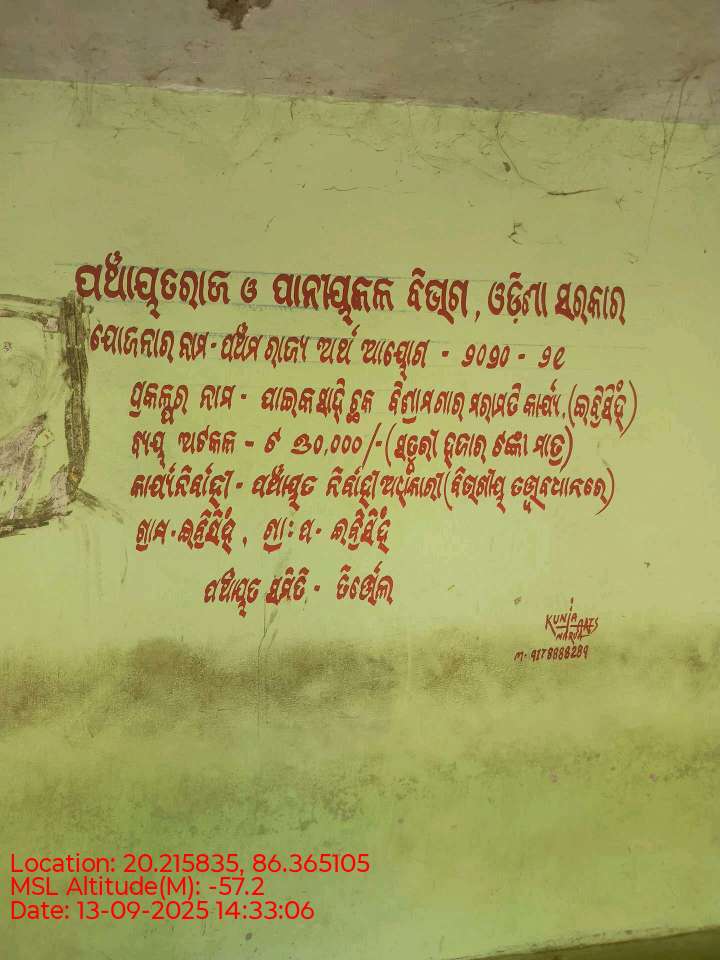 ପଞ୍ଚାୟତରାଜ ଓ ପାନୀୟଜଳ ବିଭାଗ, ଓଡ଼ିଶା ସରକାର
ଯୋଜନାର ନାମ - ପଞ୍ଚମ ରାଜ୍ୟ ଅର୍ଥ ଆୟୋଗ - ୨୦୨୦ - ୨୧
ପ୍ରକଳ୍ପର ନାମ - ପାଇକସାହି ଛକ ବିଶ୍ରାମଗାର ମରାମତି କାର୍ଯ୍ୟ,
ବ୍ୟୟ ଅଟକଳ - ୭୦,୦୦୦/- (ସତୁରୀ ହଜାର ଟଙ୍କା ମାତ୍ର)
କାର୍ଯ୍ୟନିର୍ବାହୀ - ପଞ୍ଚାୟତ ନିର୍ବାହୀ ଅଧିକାରୀ (ବିଭାଗୀୟ ତତ୍ତ୍ୱବଧାନରେ)
ଗ୍ରାମ - , ଗ୍ରା: ପ -
ପଞ୍ଚାୟତ ସମିତି - ତିର୍ତ୍ତୋଲ
KUNJA ARTS
MARVA
M- 9178888289
Location: 20.215835, 86.365105
MSL Altitude(M): -57.2
Date: 13-09-2025 14:33:06